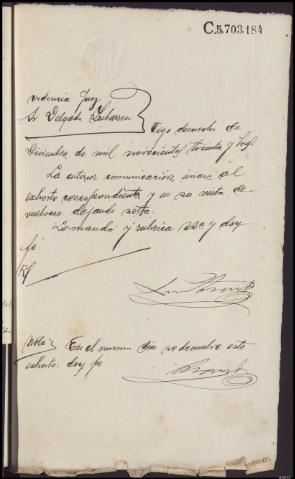 C.5.703.184
videncia Juez
Sr Delgado Iribarren
Vigo dieciocho de
Diciembre de mil novecientos treinta y
La anterior comunicacion, unase al
exhorto correspondiente y en su vista de-
vuelvase dejando nota.
Lo mandó y rubrica SSª y doy
fe.
Nota = En el mismo dia se devuelve este
exhorto: doy fe